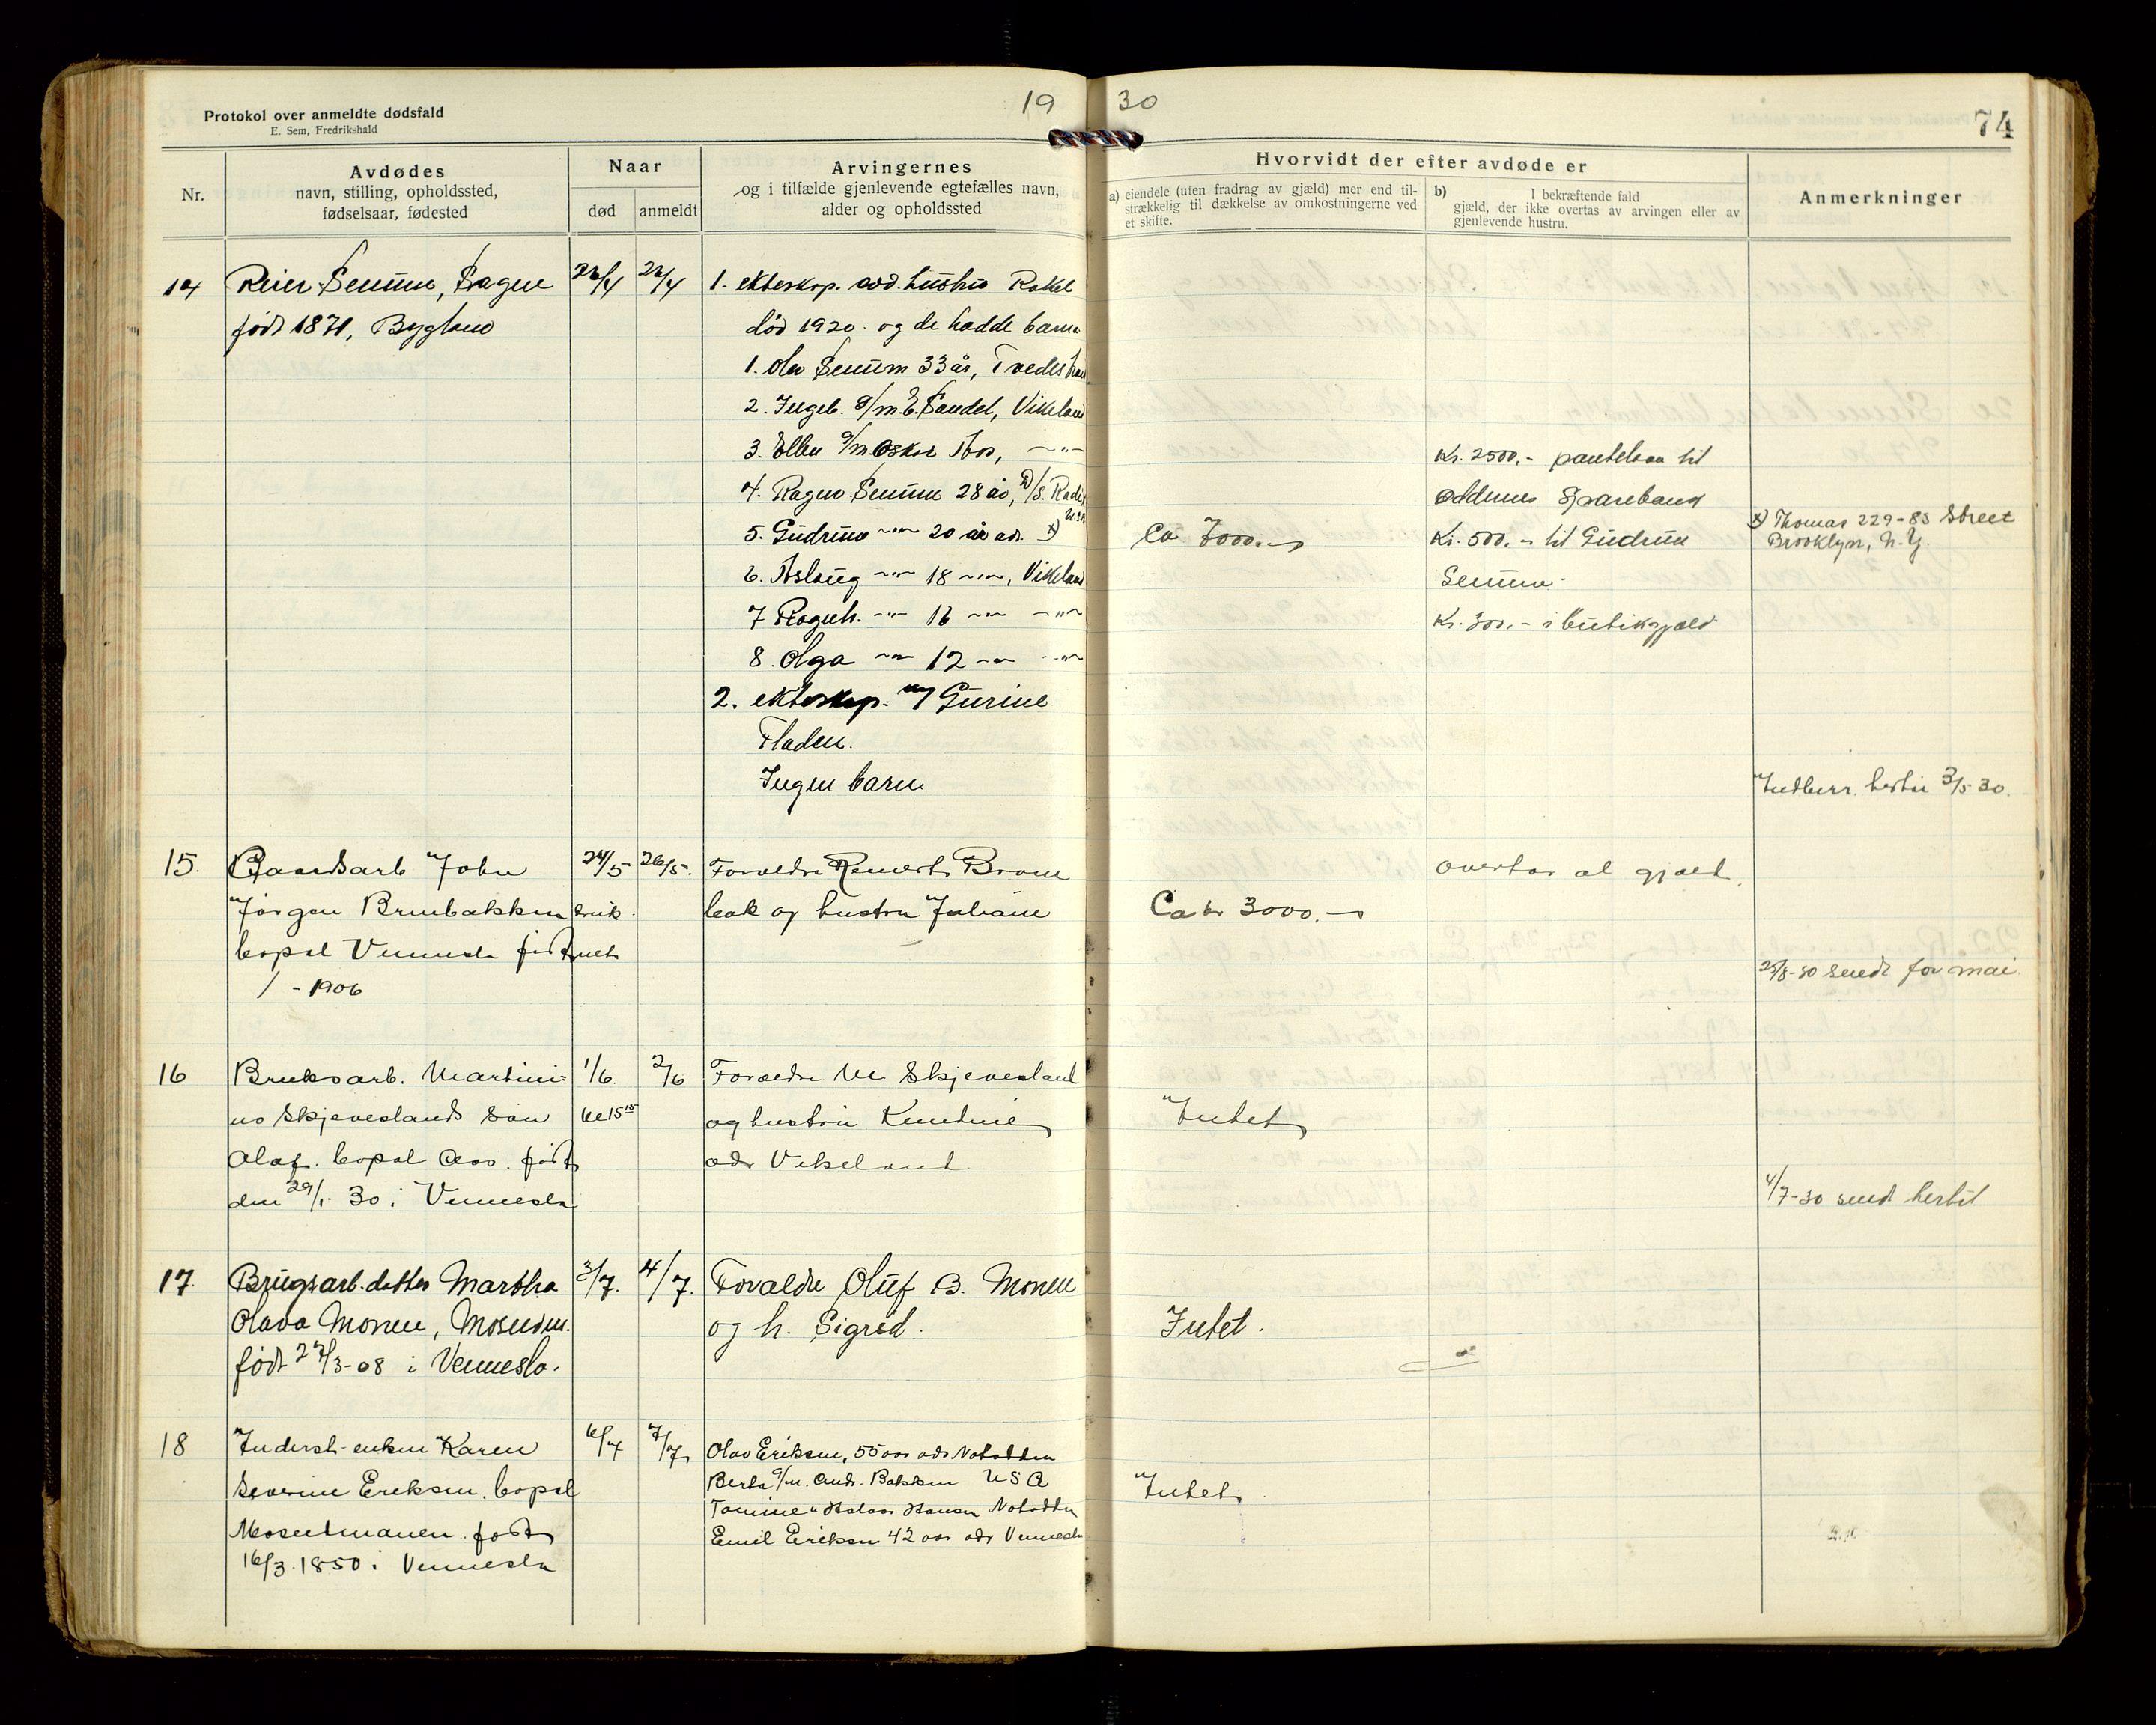 Protokol over anmeldte dødsfald
E. Sem, Fredrikshald
19 30
74
Nr.
Avdødes
navn, stilling, opholdssted,
fødselsaar, fødested
Naar
død
anmeldt
Arvingernes
og i tilfælde gjenlevende egtefælles navn,
alder og opholdssted
Hvorvidt der efter avdøde er
a) eiendele (uten fradrag av gjæld) mer end til-
strækkelig til dækkelse av omkostningerne ved
et skifte.
b) I bekræftende fald
gjæld, der ikke overtas av arvingen eller av
gjenlevende hustru.
Anmerkninger
14
Reier Senum,
født 1871, Bygland
1. ekteskap. avd. hustru Rakel
død 1920. og de hadde barna
1. Olav Senum 33 år, Tvedestrand
2. Ingeb. g/m. E. Sandel, Vikeland
3. Ellen g/m. Oskar Aas, -"-
4. Ragnv. Senum 28 år,
5. Gudrun -"- 20 år adr. x)
6. Aslaug -"- 18 -"-, Vikeland
7 Ragnh. -"- 16 -"- -"-
8. Olga -"- 12 -"- -"-
2. ekteskap. m/ Gurine
Fladen.
Ingen barn
Ca 7000.-
Kr. 2500.- pantelaan til
Oddernes Sparebank
Kr. 500.- til Gudrun
Senum.
Kr. 300.- i butikgjæld
x) Thomas 229-83 Street
Brooklyn, N.Y.
Indberr. hertil 3/5 30.
15.
Gaardsarb John
Jørgen Brunbakken
bopal Vennesla født
/ - 1906
24/5
druk-
net
26/5.
Forældre Remert Brom
bak og hustru Juliane
Ca kr 3000.-
overtar al gjæld.
23/8-30 sendt for mai
16
Bruksarb. Martini-
us Skjeveslands søn
Olaf. bopal Aas. født
den 29/1. 30 i Vennesla
1/6.
kl 15 15
2/6
Forældre M Skjevesland
og hustru Kundine
adr Vikeland
Intet
4/7-30 send hertil
17.
Brugsarb. datter Martha
Olava Monen, Moseidm.
født 27/3-08 i Vennesla.
3/7.
4/7.
Forældre Oluf B. Monen
og h. Sigrid.
Intet.
18
Inderst-enken Karen
Severine Eriksen. bopal
Moseidmonen. født
16/3. 1850 i Vennesla
6/7
7/7
Olav Eriksen, 55 aar adr Notodden
Berta g/m. Andr. Bakken U S A
Tomine " Halvor Hansen Notodden
Emil Eriksen 42 aar adr Vennesla
Intet